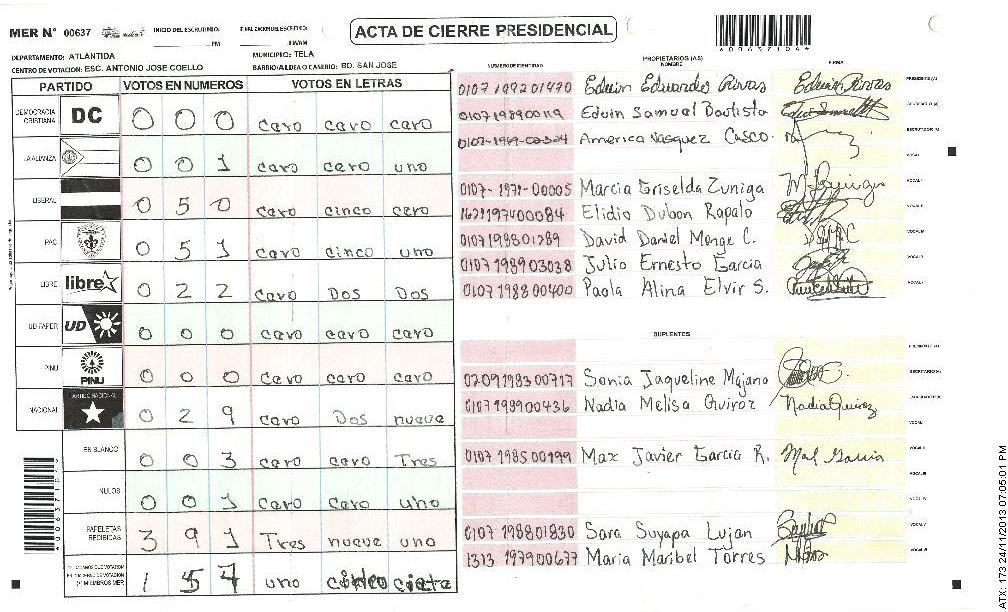 MER N° 00637
INICIO DEL ESCRUTINIO: PM
ACTA DE CIERRE PRESIDENCIAL
DEPARTAMENTO: ATLANTIDA
MUNICIPIO: TELA
CENTRO DE VOTACION: ESC. ANTONIO JOSE COELLO
BARRIO/ALDEA O CASERIO: BD. SAN JOSE
PARTIDO VOTOS EN NUMEROS VOTOS EN LETRAS
DEMOCRACIA CRISTIANA DC 0 0 0 cero cero cero
LA ALIANZA 0 0 1 cero cero uno
LIBERAL 0 5 0 cero cinco cero
PAC 0 5 1 cero cinco uno
LIBRE libre 0 2 2 cero Dos Dos
UD FAPER UD 0 0 0 cero cero cero
PINU PINU 0 0 0 cero cero cero
NACIONAL PARTIDO NACIONAL 0 2 9 cero Dos nueve
EN BLANCO 0 0 3 cero cero Tres
NULOS 0 0 1 cero cero uno
PAPELETAS RECIBIDAS 3 9 1 Tres nueve uno
1 5 7 uno cinco ciete
A00637104
NUMERO DE IDENTIDAD PROPIETARIOS (AS) NOMBRE FIRMA
0107199201470 Edwin Eduardo Rivas Edwin Rivas PRESIDENTE (A)
0107198900119 Edwin Samuel Bautista
0107-1949-00324 America Vasquez Casco
0107-1971-00005 Marcia Griselda Zuniga
1621197400084 Elidio Dubon Rapalo
0107198801289 David Daniel Monge C.
0107198903038 Julio Ernesto Garcia
0107198800400 Paola Alina Elvir S.
SUPLENTES
0209198300717 Sonia Jaqueline Majano SECRETARIO (A)
0107198900436 Nadia Melisa Quiroz Nadia Quiroz
0107198500199 Max Javier Garcia R.
0107198801830 Sara Suyapa Lujan
1313197900677 Maria Maribel Torres
ATX: 173 24/11/2013 07:05:01 PM